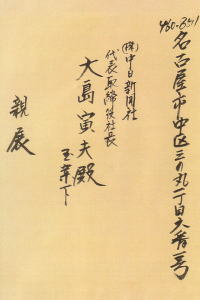 460-8511
名古屋市中区三の丸一丁目六番一号
(株)中日新聞社
代表取締役社長
大島寅夫殿
玉案下
親展